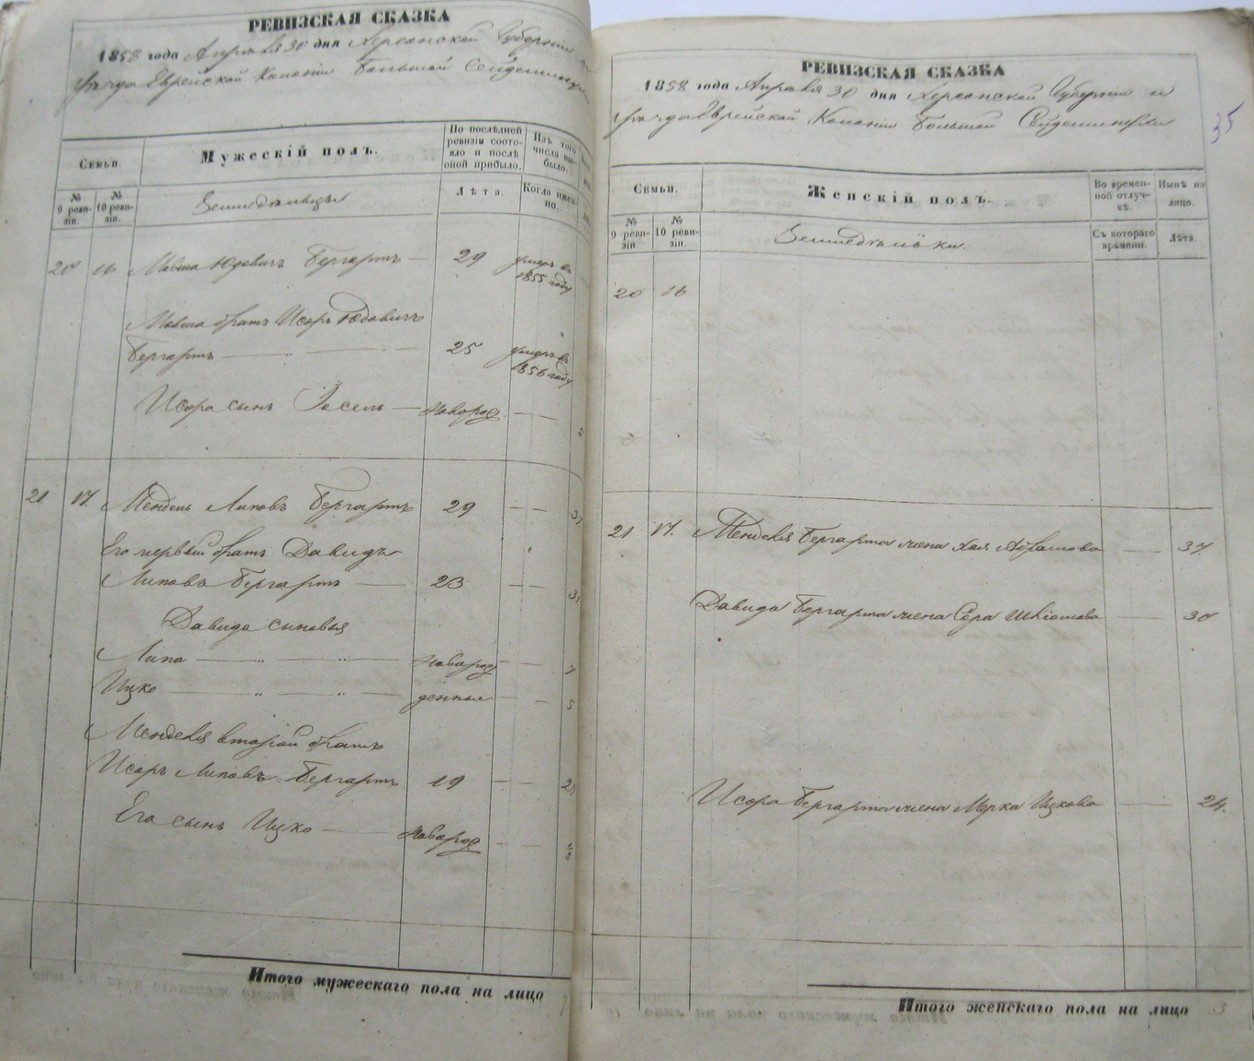 РЕВИЗСКАЯ СКАЗКА
1858 года Апреля 30 дня Херсонской Губернии
Уезда Еврейской Колонии Большой Сейдеминухи
Семьи.
Мужескій полъ.
По последней ревизіи состояло и послѣ оной прибыло.
Изъ того числа выбыло.
№ 9 ревизіи.
№ 10 ревизіи.
Земледѣльцы
Лѣта.
Когда именно.
20 16 Мовша Юдовичъ Бергартъ — 29 умеръ въ 1855 году
Мовша братъ Исоръ Юдовичъ
Бергартъ — 25 умеръ въ 1856 году
Исора сынъ Іосель — Новород — —
21 17. Мендель Липовъ Бергартъ 29 — —
Его первый братъ Давидъ
Липовъ Бергартъ — 23 — —
Давида сыновья
Липа — " — " — Новорож — — 7
Ицко — " — " — денные — — 5
Менделя второй братъ
Исоръ Липовъ Бергартъ 19 — —
Его сынъ Ицко — Новорож — —
Итого мужескаго пола на лицо
РЕВИЗСКАЯ СКАЗКА
1858 года Апреля 30 дня Херсонской Губерніи и
Уезда Еврейской Колоніи Большой Сейдеминухи
35
Семьи.
Женскій полъ.
Во временной отлучкѣ.
Нынѣ на лицо.
№ 9 ревизіи.
№ 10 ревизіи.
Земледѣльки.
Съ котораго времени.
Лѣта.
20 16
21 17. Менделя Бергарта жена Хая Абрамова — 37.
Давида Бергарта жена Сора Шліомова — 30
Исора Бергарта жена Мерка Ицкова — 24.
Итого женскаго пола на лицо 3